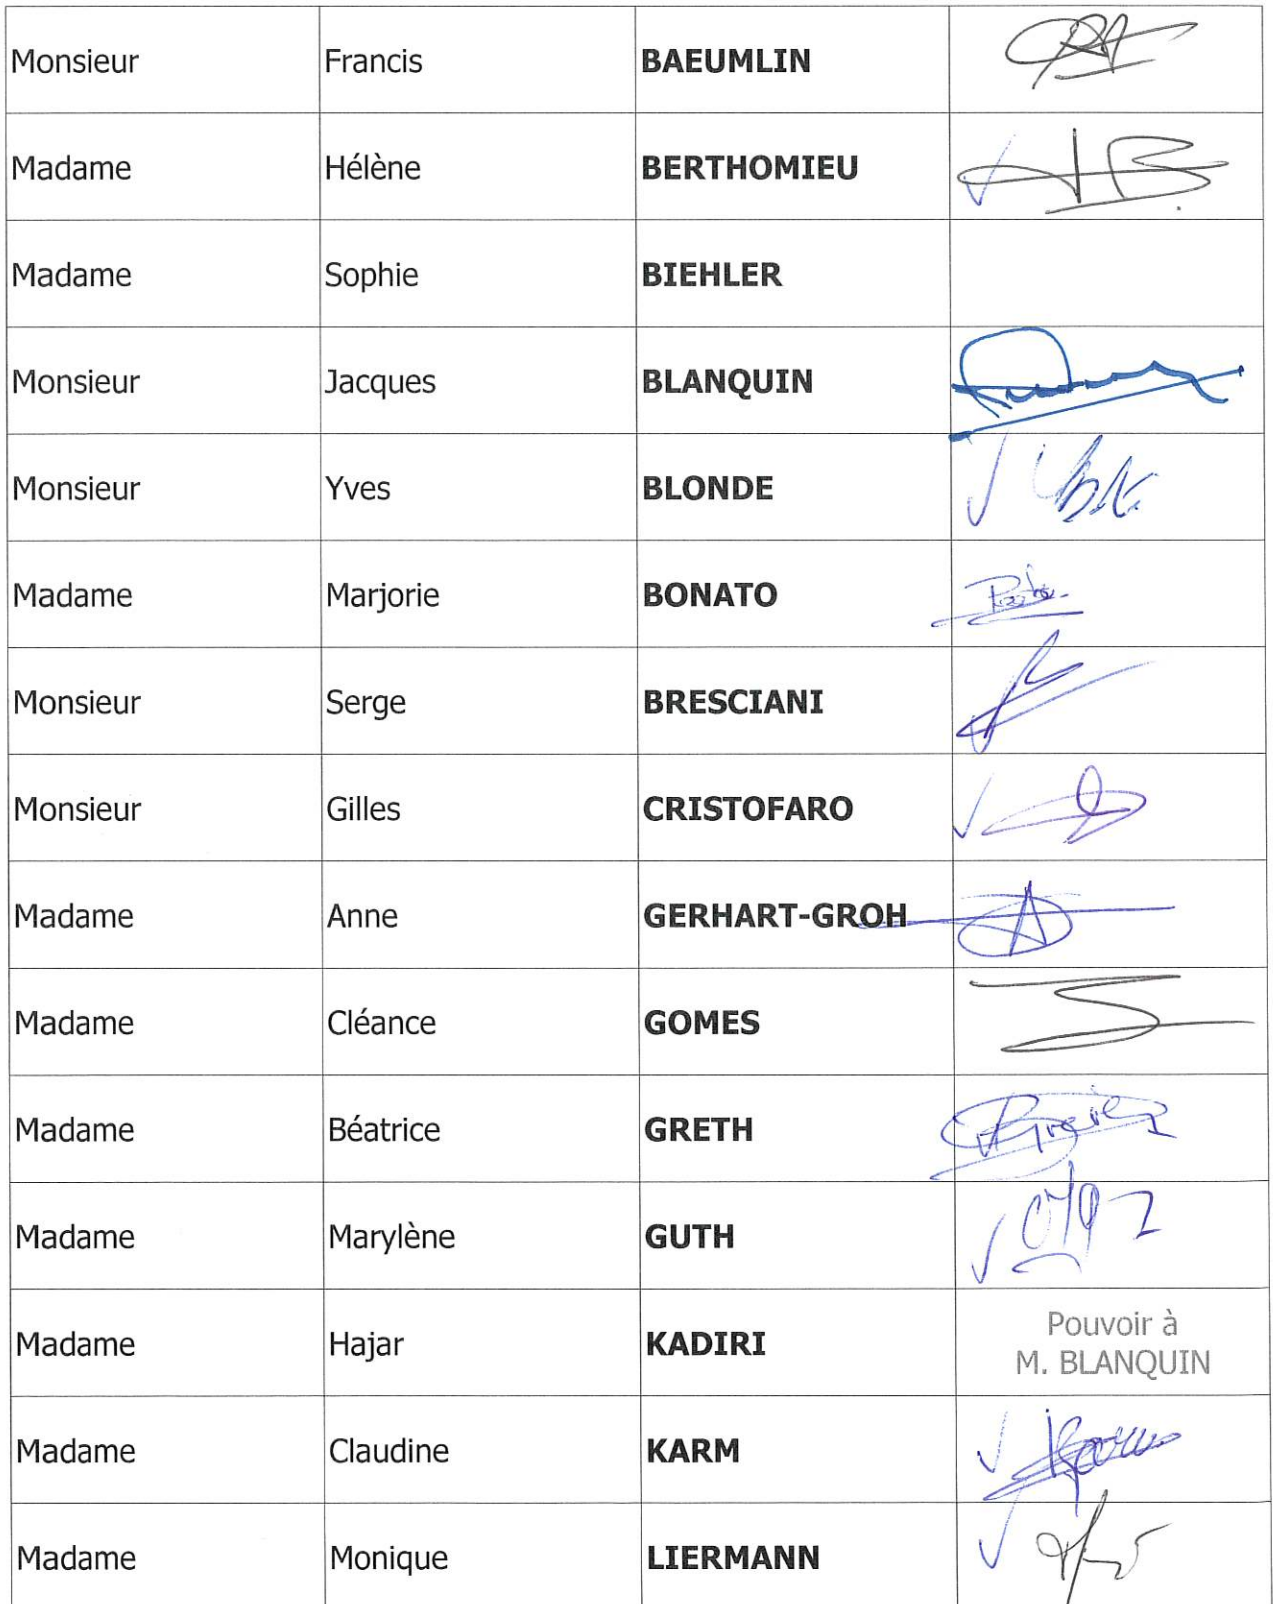 Monsieur Francis BAEUMLIN
Madame Hélène BERTHOMIEU
Madame Sophie BIEHLER
Monsieur Jacques BLANQUIN
Monsieur Yves BLONDE
Madame Marjorie BONATO
Monsieur Serge BRESCIANI
Monsieur Gilles CRISTOFARO
Madame Anne GERHART-GROH
Madame Cléance GOMES
Madame Béatrice GRETH
Madame Marylène GUTH
Madame Hajar KADIRI Pouvoir à
M. BLANQUIN
Madame Claudine KARM
Madame Monique LIERMANN